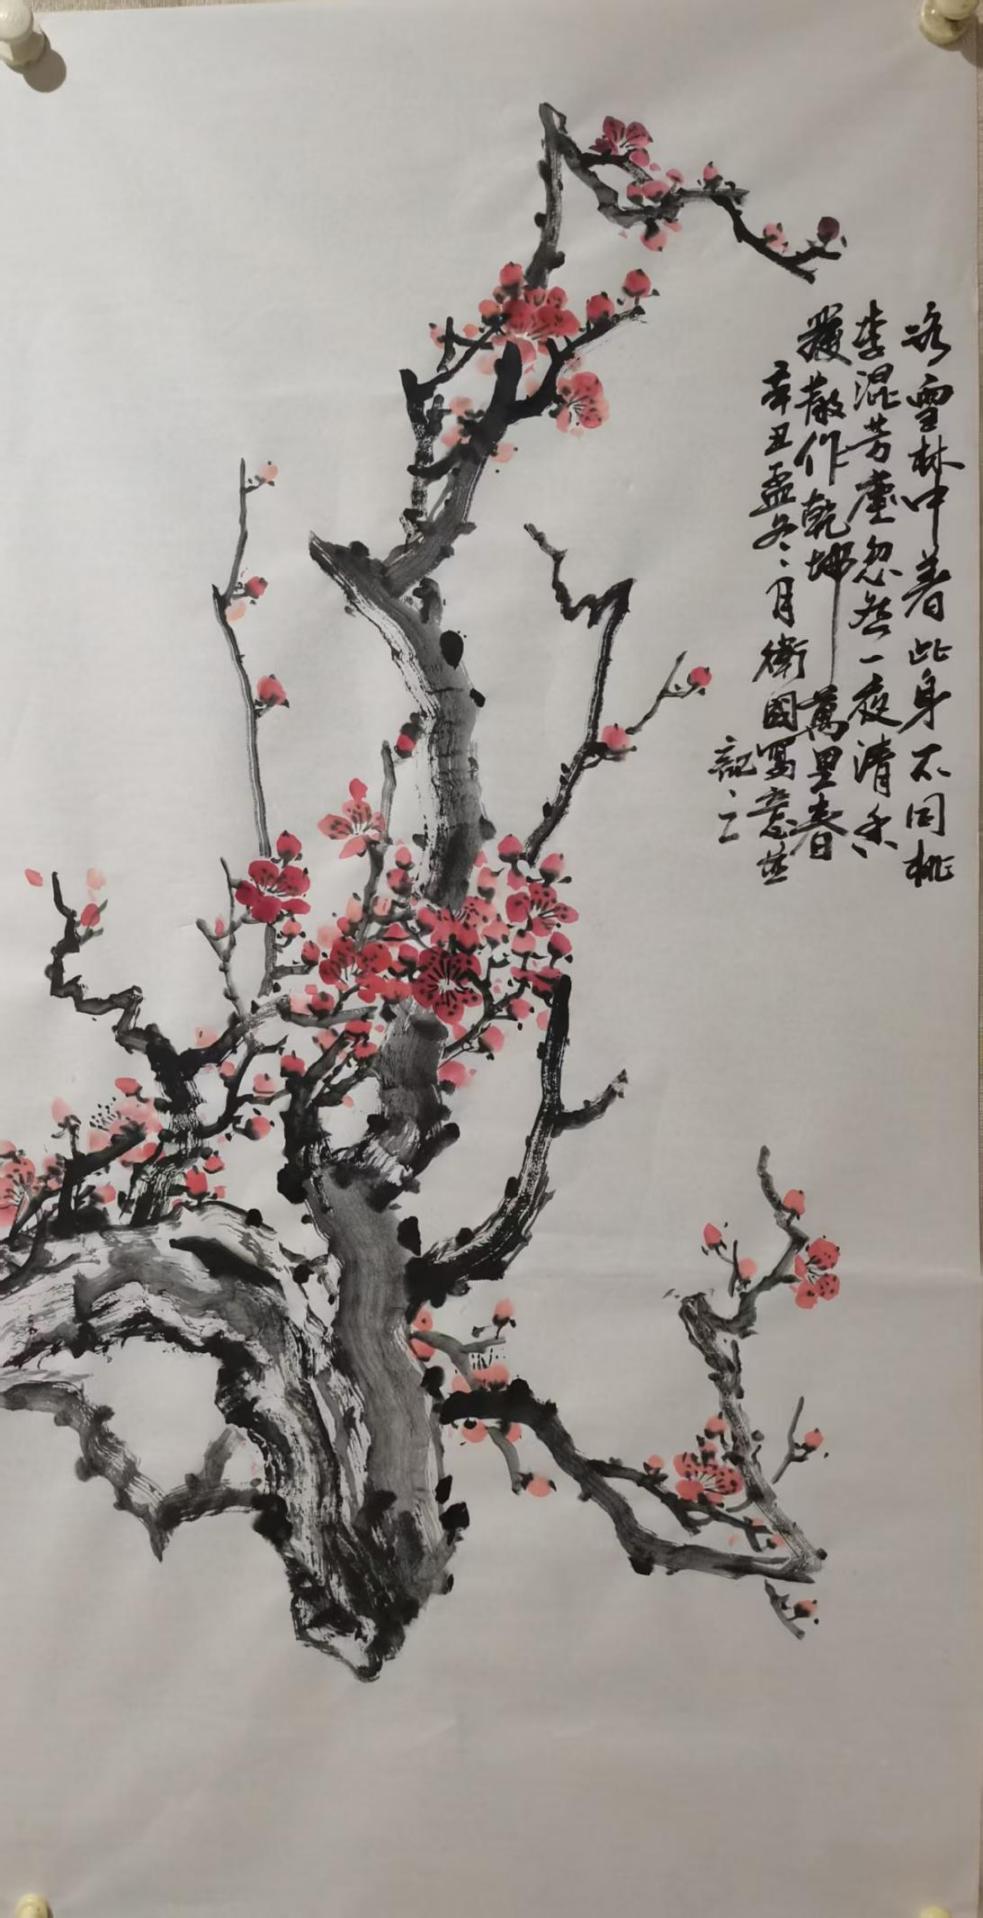 冰雪林中着此身不同桃
李混芳塵忽然一夜清香
發散作乾坤萬里春
辛丑孟冬月衛國寫意並
記之